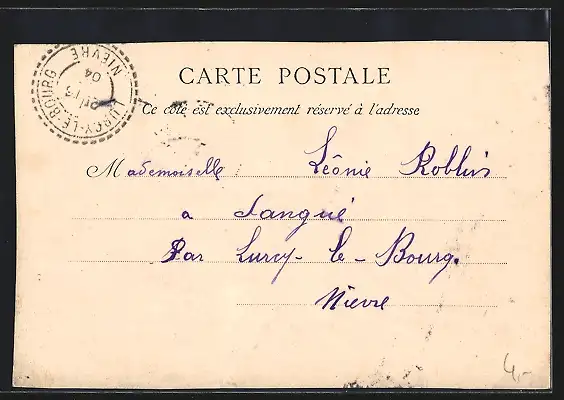 CARTE POSTALE
Ce côté est exclusivement réservé à l'adresse
Mademoiselle Léonie Roblin
a Sangué
Par Lurcy-le-Bourg.
Nièvre
LURCY-LE-BOURG
NIÈVRE
04
4,-